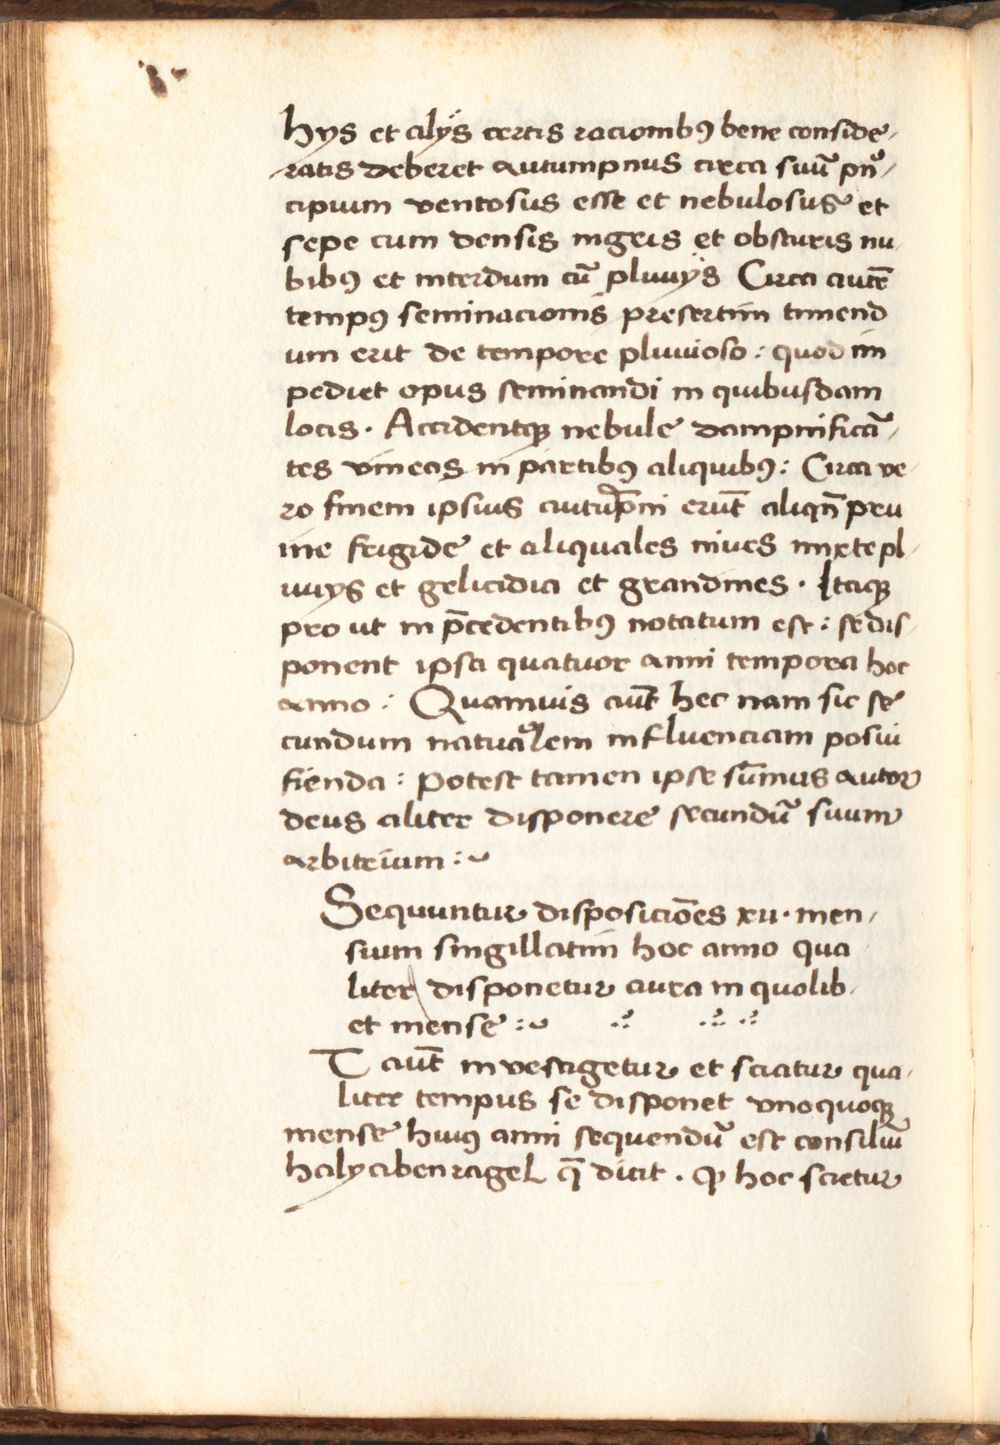 hys et alÿs certis racionibꝰ bene conside-
ratis deberet autumpnus circa suū prin-
cipium ventosus esse et nebulosus et
sepe cum densis nigris et obscuris nu
bibꝰ et interdum cū pluuÿs Circa autē
tempꝰ seminacionis presertim timend
um erit de tempore pluuioso : quod im
pediet opus seminandi in quibusdam
locis . Accidentqꝫ nebule dampnificā-
tes vineas in partibꝰ aliquibꝰ : Circa ve-
ro finem ipsius autūpni erūt aliqn̄ pru
ine frigide et aliquales niues mixte pl-
uuys et gelicidia et grandines . Itaqꝫ
pro ut in p̄cedentibꝰ notatum est : se dis-
ponent ipsa quatuor anni tempora hoc
anno : Quamuis aūt hec nam sic se
cundum natuᵃlem influenciam posui
fienda : Potest tamen ipse sūmus autor
deus aliter disponere secundū suum
arbitrium :~
Sequuntur disposiciōes xii . men-
sium singillatim hoc anno qua
liter disponetur aura in quolib-
et mense :~
T aūt investigetur et sciatur qua-
liter tempus se disponet vnoquoqꝫ
mense huiꝰ anni sequendū est consiliū
haly abenragel q̄ dicit . ꝙ hoc scietur